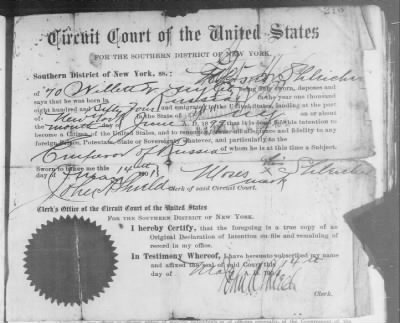 Circuit Court of the United States
FOR THE SOUTHERN DISTRICT OF NEW YORK.
Southern District of New York, ss.:
of 70 Willett being duly sworn, deposes and
says that he was born in Russia in the year one thousand
eight hundred and fifty four and emigrated to the United States, landing at the port
of New York in the State of on or about
the month June A. D. it is his bona fide intention to
become a Citizen of the United States, and to renounce forever all allegiance and fidelity to any
foreign Prince, Potentate, State or Sovereignty whatever, and particularly to the
Emperor of Russia of whom he is at this time a Subject.
Sworn to before me this 14th
day of May Moses his
John A Shields Clerk of said Circuit Court. mark
Clerk's Office of the Circuit Court of the United States
FOR THE SOUTHERN DISTRICT OF NEW YORK.
I hereby Certify, that the foregoing is a true copy of an
Original Declaration of Intention on file and remaining of
record in my office.
In Testimony Whereof, I have hereunto subscribed my name
and affixed the seal of said Court this 14th
day of May
John A Shields
Clerk.